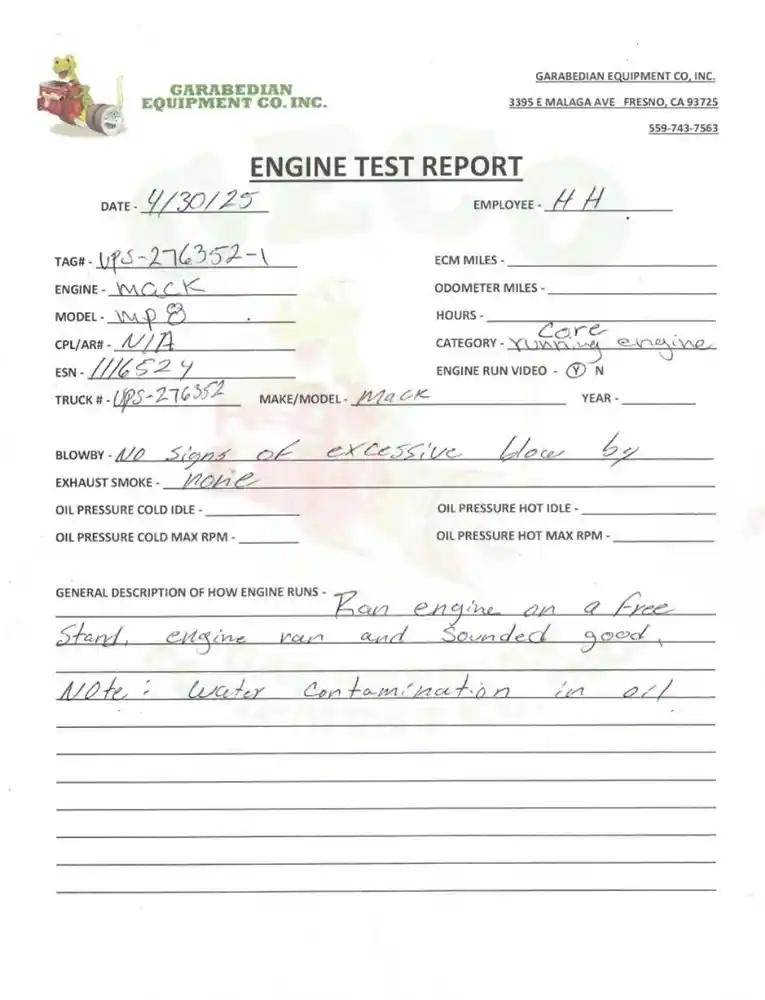 GARABEDIAN EQUIPMENT CO, INC.
GARABEDIAN
EQUIPMENT CO. INC.
3395 E MALAGA AVE FRESNO, CA 93725
559-743-7563
ENGINE TEST REPORT
DATE - 4/30/25 EMPLOYEE - H H
TAG# - UPS-276352-1 ECM MILES -
ENGINE - MACK ODOMETER MILES -
MODEL - MP8 HOURS -
Core
CPL/AR# - N/A CATEGORY - running engine
ESN - 1116524 ENGINE RUN VIDEO - Y N
TRUCK # - UPS-276352 MAKE/MODEL - Mack YEAR -
BLOWBY - NO Signs of excessive blow by
EXHAUST SMOKE - none
OIL PRESSURE COLD IDLE - OIL PRESSURE HOT IDLE -
OIL PRESSURE COLD MAX RPM - OIL PRESSURE HOT MAX RPM -
GENERAL DESCRIPTION OF HOW ENGINE RUNS - Ran engine on a free
Stand, engine ran and Sounded good.
NOte: Water Contamination in oil